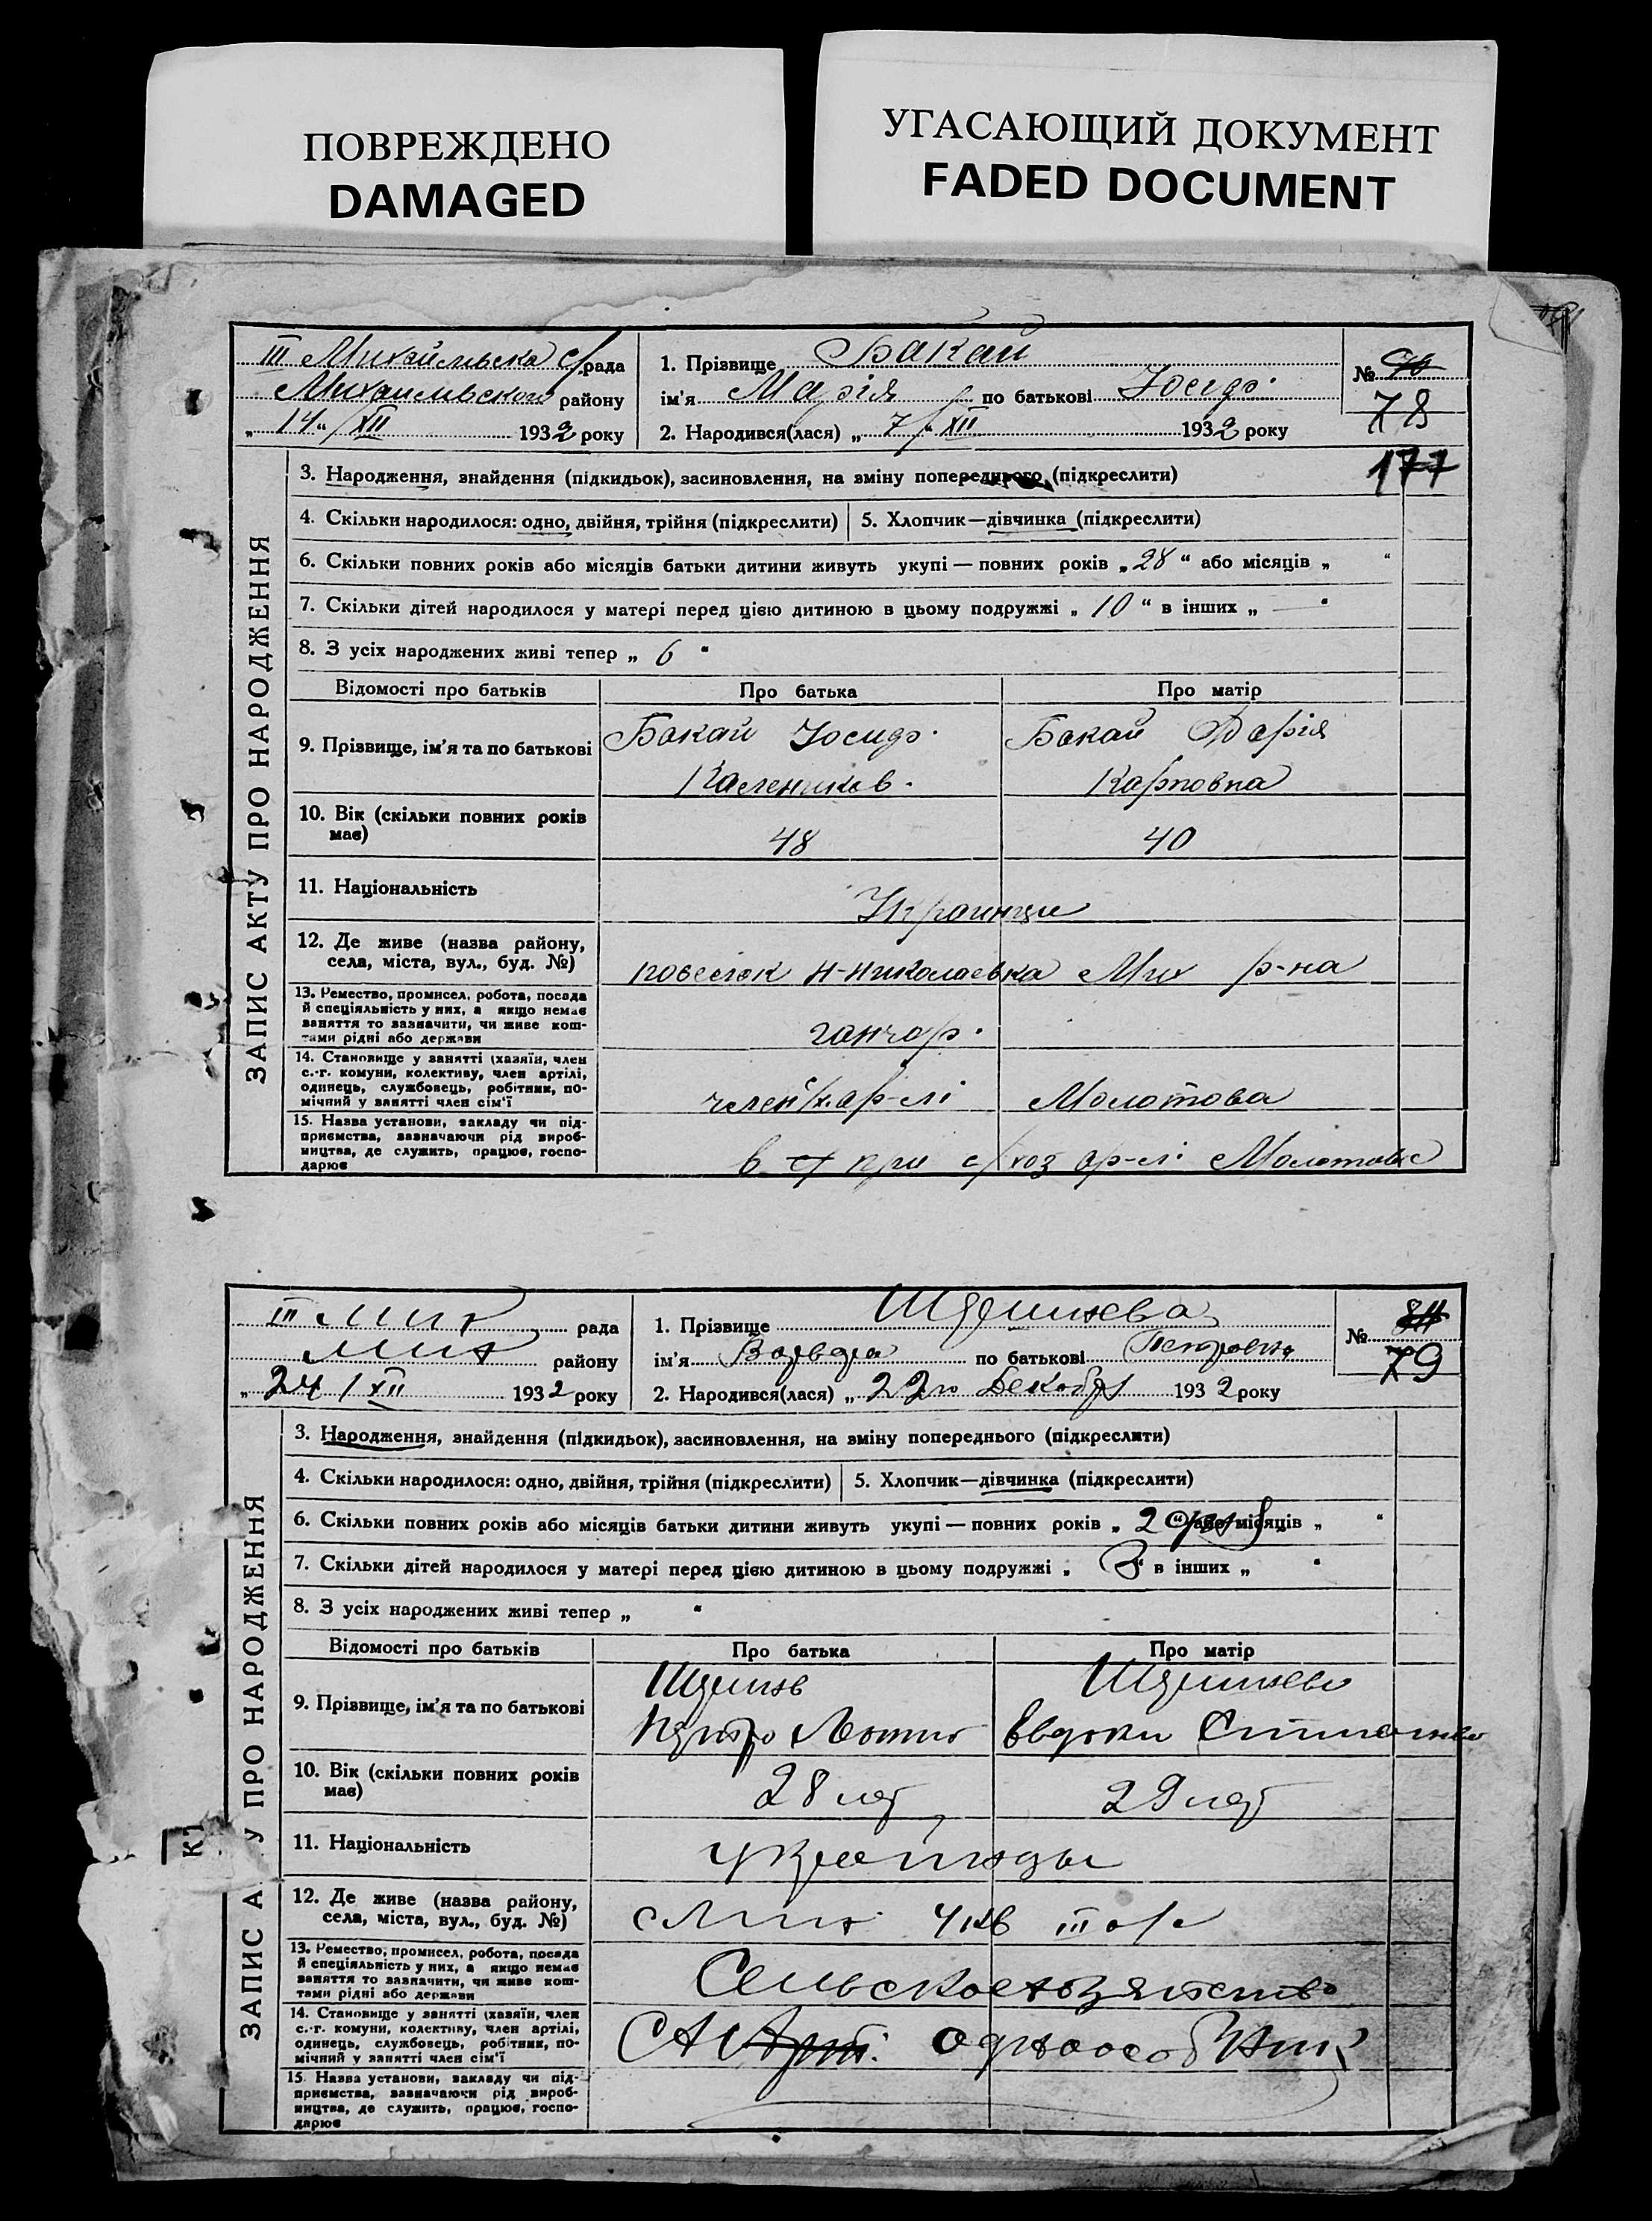 ПОВРЕЖДЕНО
DAMAGED
УГАСАЮЩИЙ ДОКУМЕНТ
FADED DOCUMENT
ЗАПИС АКТУ ПРО НАРОДЖЕННЯ
III Михайлівська с/рада
району
„14“/XII 1932 року
1. Прізвище Бакай
ім'я Марія по батькові Йосиф.
2. Народився(лася) „7“/XII 1932 року
№
78
177
3. Народження, знайдення (підкидьок), засиновлення, на зміну попереднього (підкреслити)
4. Скільки народилося: одно, двійня, трійня (підкреслити) 5. Хлопчик—дівчинка (підкреслити)
6. Скільки повних років або місяців батьки дитини живуть укупі — повних років „28“ або місяців „ “
7. Скільки дітей народилося у матері перед цією дитиною в цьому подружжі „10“ в інших „—“
8. З усіх народжених живі тепер „6“
Відомості про батьків Про батька Про матір
9. Прізвище, ім'я та по батькові Бакай Йосиф. Бакай Дарія
Калеников. Карповна
10. Вік (скільки повних років
має) 48 40
11. Національність
Украинци
12. Де живе (назва району,
села, міста, вул., буд. №) Н-Николаевка Мих р-на
13. Ремество, промисел, робота, посада
й спеціяльність у них, а якщо немає
заняття то зазначити, чи живе кош-
тами рідні або держави
ганчар.
14. Становище у занятті (хазяїн, член
с.-г. комуни, колективу, член артілі,
одинець, службовець, робітник, по-
мічний у занятті член сім'ї
член с/х. ар-лі Молотова
15. Назва установи, закладу чи під-
приємства, зазначаючи рід вироб-
ництва, де служить, працює, госпо-
дарює
в при с/хоз ар-лі Молотова
ЗАПИС А У ПРО НАРОДЖЕННЯ
III Мих рада
Мих району
„24/XII 1932 року
1. Прізвище
ім'я по батькові Петровна
2. Народився(лася) „22го Декабря 1932 року
№
79
3. Народження, знайдення (підкидьок), засиновлення, на зміну попереднього (підкреслити)
4. Скільки народилося: одно, двійня, трійня (підкреслити) 5. Хлопчик—дівчинка (підкреслити)
6. Скільки повних років або місяців батьки дитини живуть укупі — повних років „2 “ або місяців „ “
7. Скільки дітей народилося у матері перед цією дитиною в цьому подружжі „ “ в інших „ “
8. З усіх народжених живі тепер „ “
Відомості про батьків Про батька Про матір
9. Прізвище, ім'я та по батькові
10. Вік (скільки повних років
має) 28 лет 29 лет
11. Національність
украинцы
12. Де живе (назва району,
села, міста, вул., буд. №) с Мих III
13. Ремество, промисел, робота, посада
й спеціяльність у них, а якщо немає
заняття то зазначити, чи живе кош-
тами рідні або держави
Сельское
14. Становище у занятті (хазяїн, член
с.-г. комуни, колективу, член артілі,
одинець, службовець, робітник, по-
мічний у занятті член сім'ї
15. Назва установи, закладу чи під-
приємства, зазначаючи рід вироб-
ництва, де служить, працює, госпо-
дарює